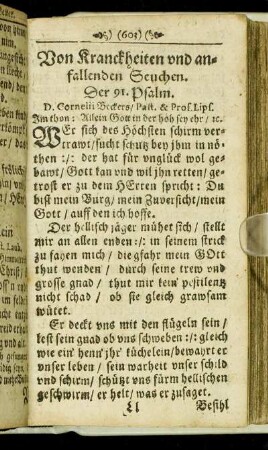 (603)
Von Kranckheiten vnd an-
fallenden Seuchen.
Der 91. Psalm.
D. Cornelii Beckers / Past. & Prof. Lips.
Im thon: Allein Gott in der höh sey ehr / ic.
WEr sich des Höchsten schirm ver-
trawt / sucht schutz bey jhm in nö
then :/: der hat für vnglück wol ge-
bawt / Gott kan vnd wil jhn retten / ge-
trost er zu dem HErren spricht: Du
bist mein Burg / mein Zuversicht / mein
Gott / auff den ich hoffe.
Der hellisch jäger mühet sich / stellt
mir an allen enden :/: in seinem strick
zu fahen mich / die gfahr mein GOtt
thut wenden / durch seine trew vnd
grosse gnad / thut mir kein pestilentz
nicht schad / ob sie gleich grawsam
wütet.
Er deckt vns mit den flügeln sein /
lest sein gnad ob vns schweben :/: gleich
wie ein henn jhr küchelein / bewahrt er
vnser leben / sein warheit vnser schild
vnd schirm / schützt vns fürm hellischen
geschwirm / er helt / was er zusaget.
Ll Befihl